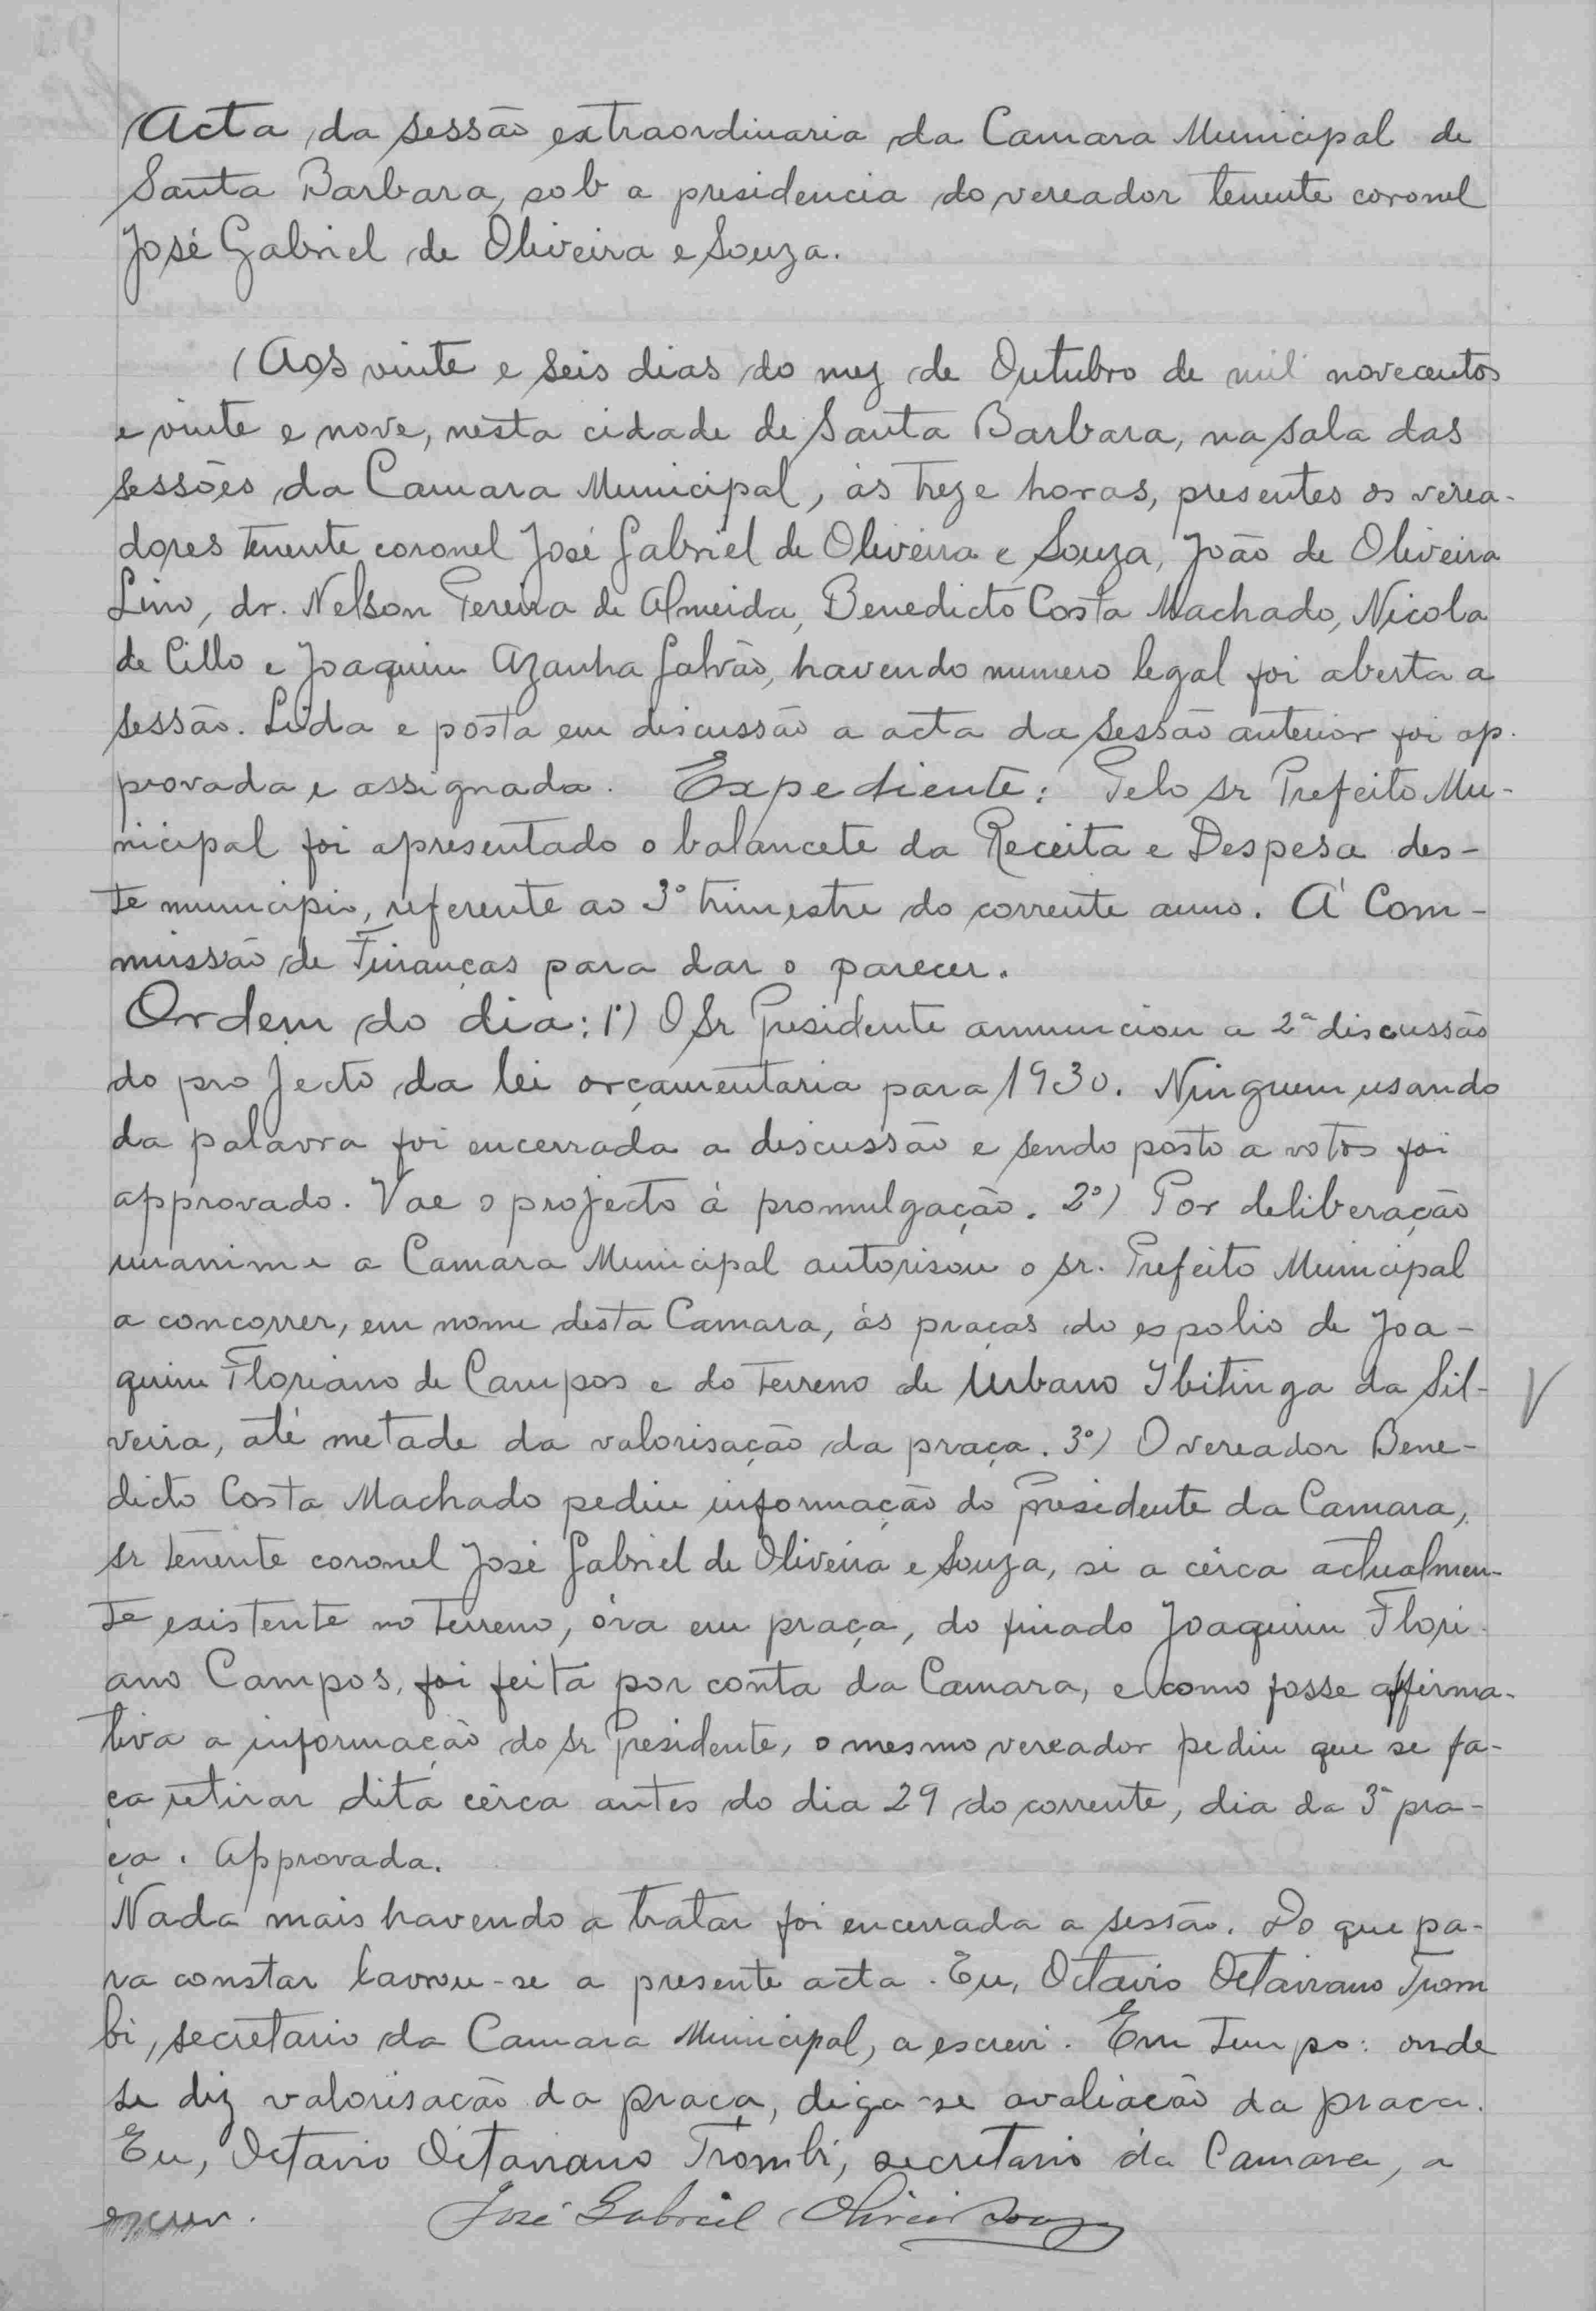 Acta da sessão extraordinaria da Camara Municipal de
Santa Barbara, sob a presidencia do vereador tenente coronel
José Gabriel de Oliveira e Souza.
Aos vinte e seis dias do mez de Outubro de mil novecentos
e vinte e nove, nesta cidade de Santa Barbara, na sala das
sessões da Camara Municipal, ás treze horas, presentes os verea-
dores tenente coronel José Gabriel de Oliveira e Souza, João de Oliveira
Lino, dr. Nelson Pereira de Almeida, Benedicto Costa Machado, Nicola
de Cillo e Joaquim Azanha Galvão, havendo numero legal foi aberta a
sessão. Lida e posta em discussão a acta da sessão anterior foi ap-
provada e assignada. Expediente: Pelo sr Prefeito Mu-
nicipal foi apresentado o balancete da Receita e Despesa des-
te municipio, referente ao 3º trimestre do corrente anno. Á Com-
missão de Finanças para dar o parecer.
Ordem do dia: 1º) O Sr Presidente annunciou a 2ª discussão
do projecto da lei orçamentaria para 1930. Ninguem usando
da palavra foi encerrada a discussão e sendo posto a votos foi
approvado. Vae o projecto á promulgação. 2º) Por deliberação
unanime a Camara Municipal autorisou o sr. Prefeito Municipal
a concorrer, em nome desta Camara, ás praças do espolio de Joa-
quim Floriano de Campos e do terreno de Urbano Ibitinga da Sil-
veira, até metade da valorisação da praça. 3º) O vereador Bene-
dicto Costa Machado pediu informação do Presidente da Camara,
sr tenente coronel José Gabriel de Oliveira e Souza, si a cêrca actualmen-
te existente no terreno, óra em praça, do finado Joaquim Flori-
ano Campos, foi feita por conta da Camara, e como fosse affirma-
tiva a informação do sr Presidente, o mesmo vereador pediu que se fa-
ça retirar dita cêrca antes do dia 29 do corrente, dia da 3ª pra-
ça. Approvada.
Nada mais havendo a tratar foi encerrada a sessão. Do que pa-
ra constar lavrou-se a presente acta. Eu, Octavio Octaviano Trom
bi, secretario da Camara Municipal, a escrevi. Em tempo: onde
se diz valorisação da praça, diga-se avaliação da praça.
Eu, Octavio Octaviano Trombi, secretario da Camara, a
escrevi. José Gabriel Oliveira Souza